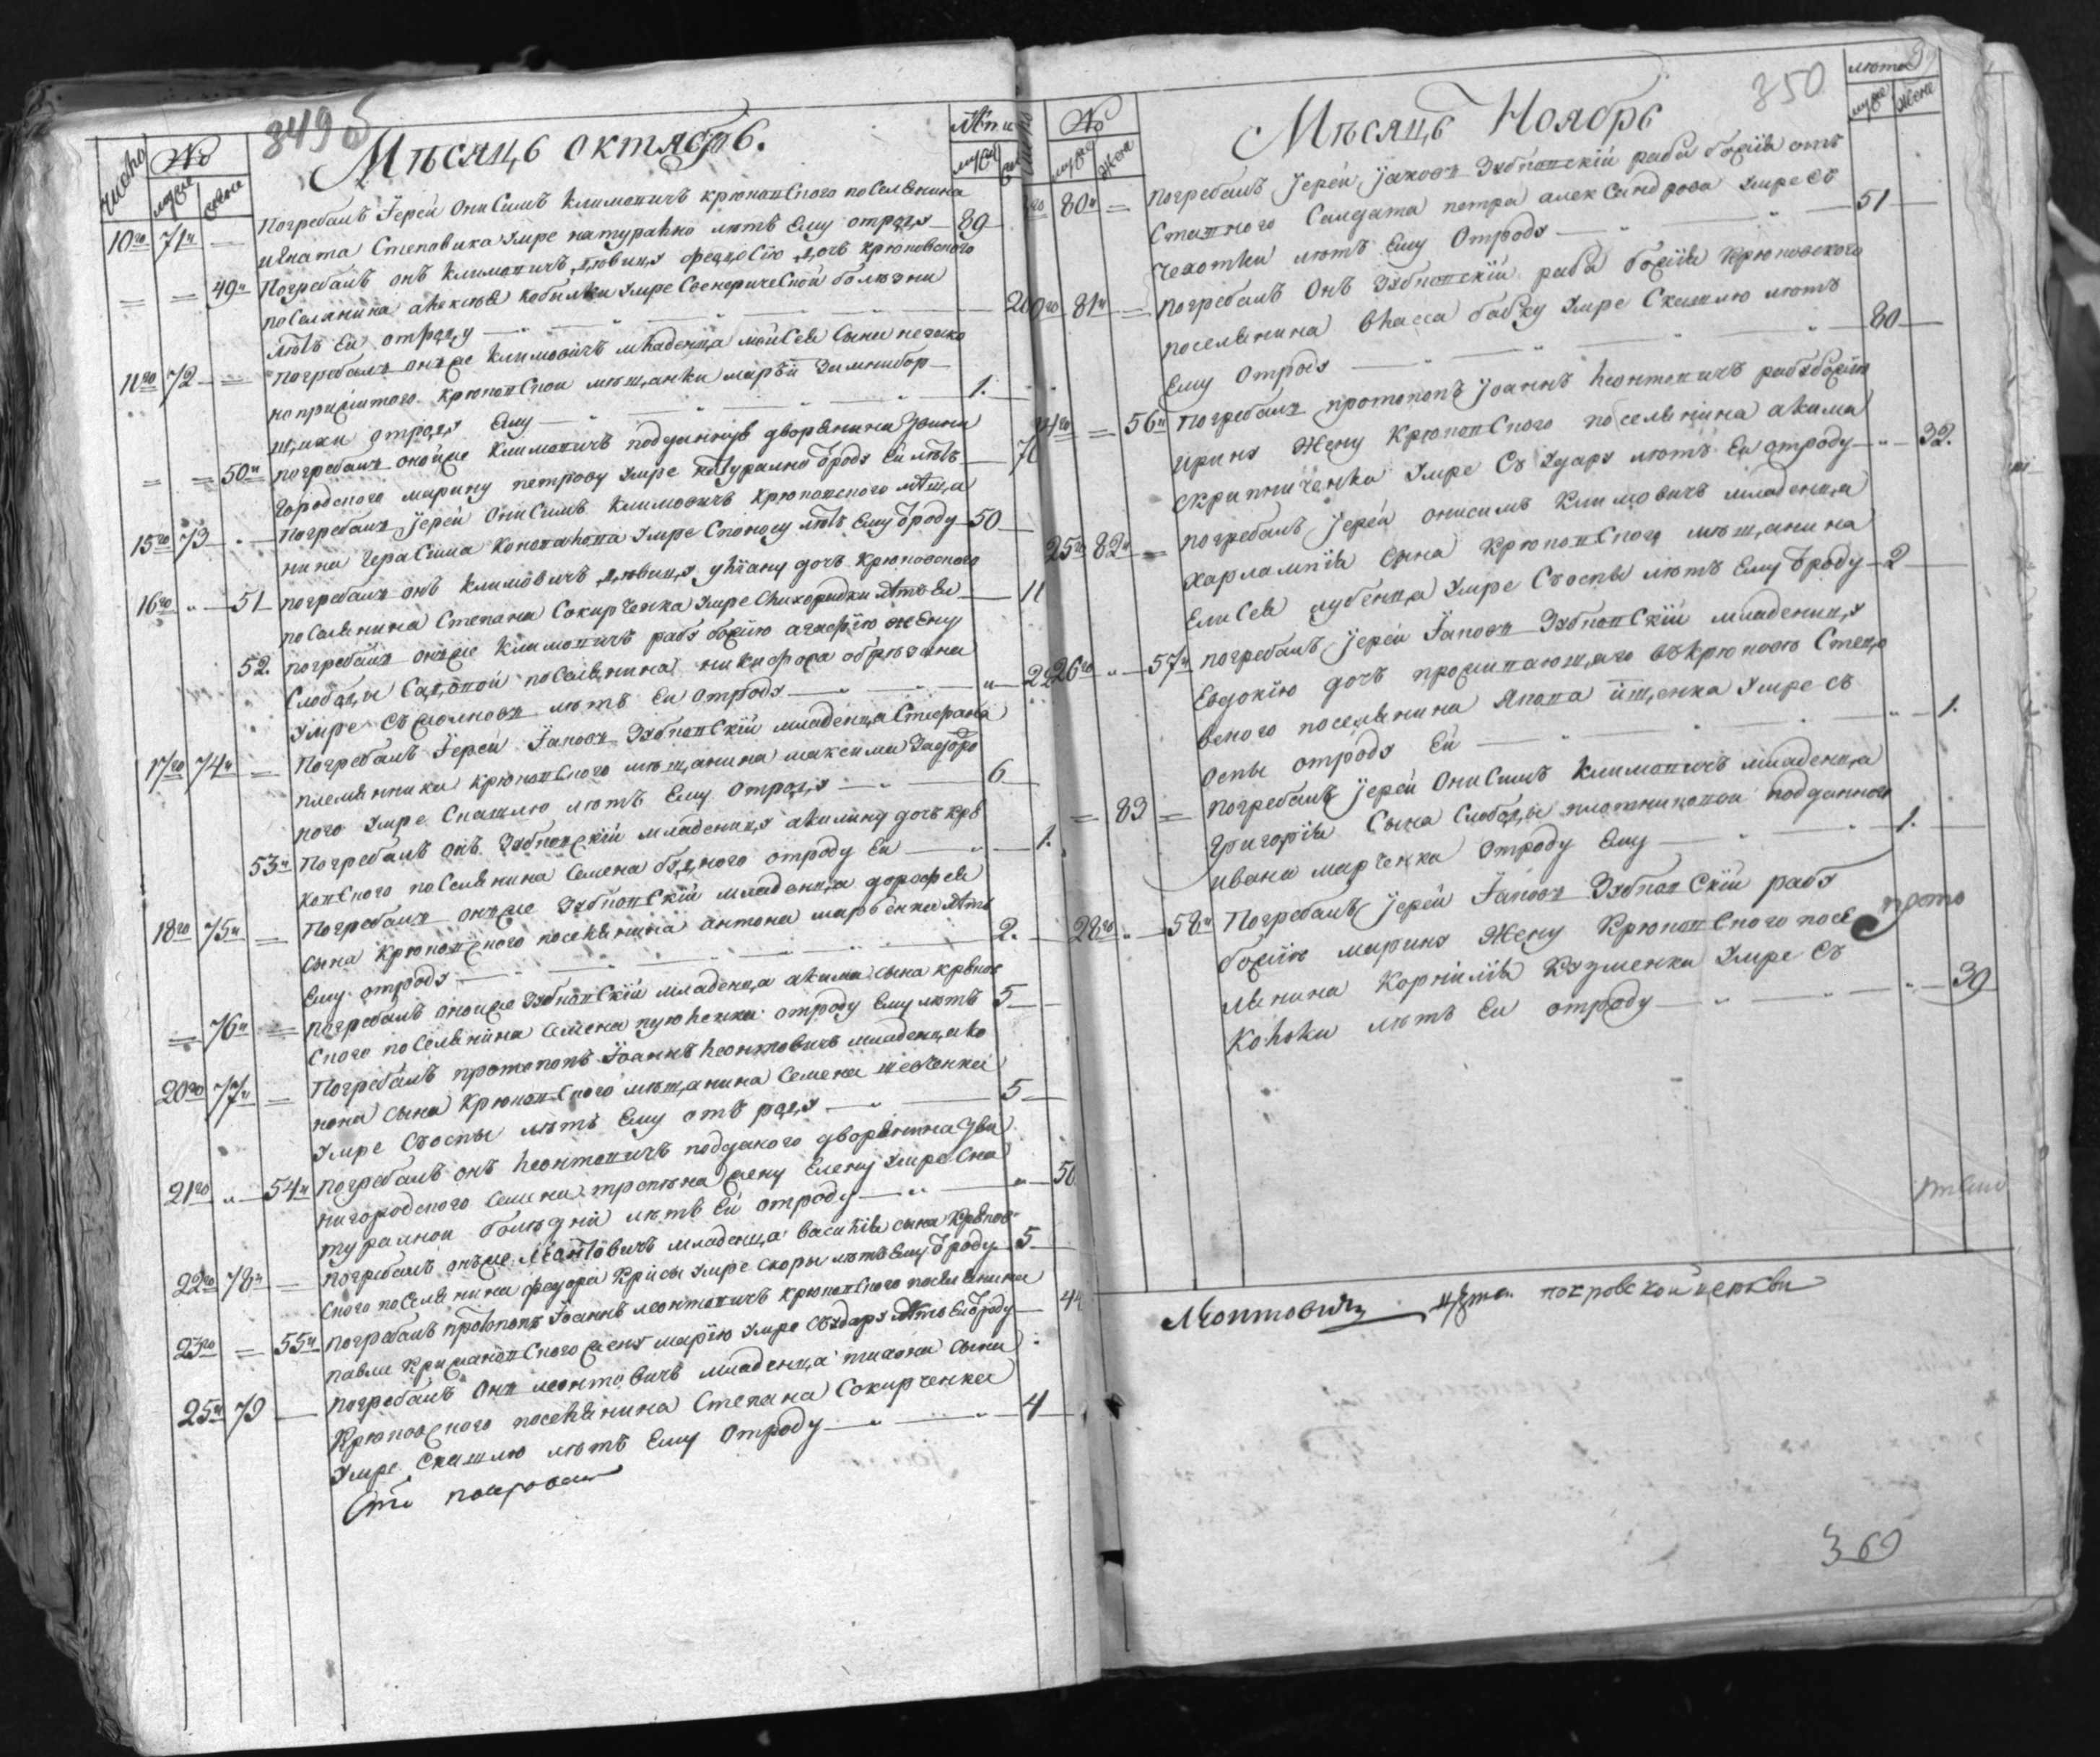 349 об
число № Мѣсяцъ октябрь. лѣта
мужс женс мужс
10го 71й Погребалъ Іерей Онисимъ Климовичъ крюковского поселянина
Игната Степовика умре натурално лѣтъ Ему отроду 89
49й Погребалъ онъ Климовичъ дѣвицу феодосію дочь крюковского
поселянина алексѣя кобилки умре Свенерической болѣзни
лѣтъ Ей отроду 20
11го 72 погребалъ онъже Климовичъ младенца мойсея Сына незако
ноприжитого крюковской мѣщанки маріи
отроду Ему 1.
50й погребалъ онойже Климовичъ подданную дворянина
городского марину петрову умре натурално ѿроду Ей лѣтъ 70
15го 73 погребалъ Іерей Онисимъ Климовичъ крюковского мѣща
нина Герасима Коновалова умре Споносу лѣтъ Ему ѿроду 50
16го 51 погребалъ онъ Климовичъ дѣвицу уліану дочь крюковского
поселянина Степана Сокирченка умре Слихорадки лѣтъ Ей 11
52. погребалъ онъже Климовичъ рабу божію агафію жену
Слободы Садовой поселянина никифора
умре лѣтъ Ей отроду 22
17го 74й Погребалъ Іерей Іаковъ Зубковскій младенца Стефана
племянника крюковского мѣщанина максима Задоро
ного умре Скашлю лѣтъ Ему отроду 6
53й Погребалъ онъ Зубковскій младеницу акилину дочь крю
ковского поселянина Семена бѣдного отроду Ей 1.
18го 75й Погребалъ онъже Зубковскій младенца дорофея
сына крюковского поселянина антона марченка лѣтъ
Ему отроду 2.
76й погребалъ онойже Зубковскій младенца акима сына крюков
ского поселянина Семена отроду Ему лѣтъ 5
20го 77й Погребалъ протопопъ Іоаннъ Леонтовичъ младенца ко
нона сына крюковского мѣщанина Семена шевченка
умре Соспы лѣтъ Ему отъ роду 5
21го 54й погребалъ онъ Леонтовичъ подданого дворянина
нигородского Семена жену Елену умре Сна
туралной болѣзни лѣтъ Ей отроду 50
22го 78й погребалъ онъже Леонтовичъ младенца василія сына крюков
ского поселянина федора Криси умре скоры лѣтъ Ему ѿроду 5
23го 55й погребалъ протопопъ Іоаннъ леонтовичъ крюковского поселянина
павла жену марію умре Съудару лѣтъ Ей ѿроду 44
25й 79 погребалъ Онъ леонтовичъ младенца тихона сына
Крюковского поселянина Степана Сокирченка
умре Скашлю лѣтъ Ему Отроду 4
№ Мѣсяцъ Ноябрь 350 лѣта
мужс жена мужс жена
80й Погребалъ Іерей Іаковъ Зубковскій раба божія отъ
ставного Салдата петра александрова умре съ
Чехотки лѣтъ Ему Отроду 51
81й погребалъ Онъ Зубковскій раба божія Крюковского
поселянина власа умре Скашлю лѣтъ
Ему Отроду 80
56й погребалъ протопопъ Іоаннъ Леонтовичъ рабу божію
ирину жену крюковского поселянина акима
скрипниченка умре Съ удару лѣтъ Ей отроду 32.
25го 82й погребалъ Іерей онисимъ Климовичъ младенца
харлампія Сына крюковского мѣщанина
Елисея лубенца умре Соспы лѣтъ Ему ѿроду 2
26го 57й погребалъ Іерей Іаковъ Зубковскій младеницу
Евдокію дочь проживающаго въкрюковѣ
поселянина умре съ
оспы отроду Ей 1.
83 погребалъ Іерей Онисимъ Климовичъ младенца
Григорія Сына Слободы плотниковой подданного
ивана марченка отроду Ему 1.
28го 58й Погребалъ Іерей Іаковъ Зубковскій рабу
божію марину жену крюковского посе
лянина Корнилія Кузменка умре Съ
Колики лѣтъ Ей отроду 39
Леонтовичъ покровской церкви
369